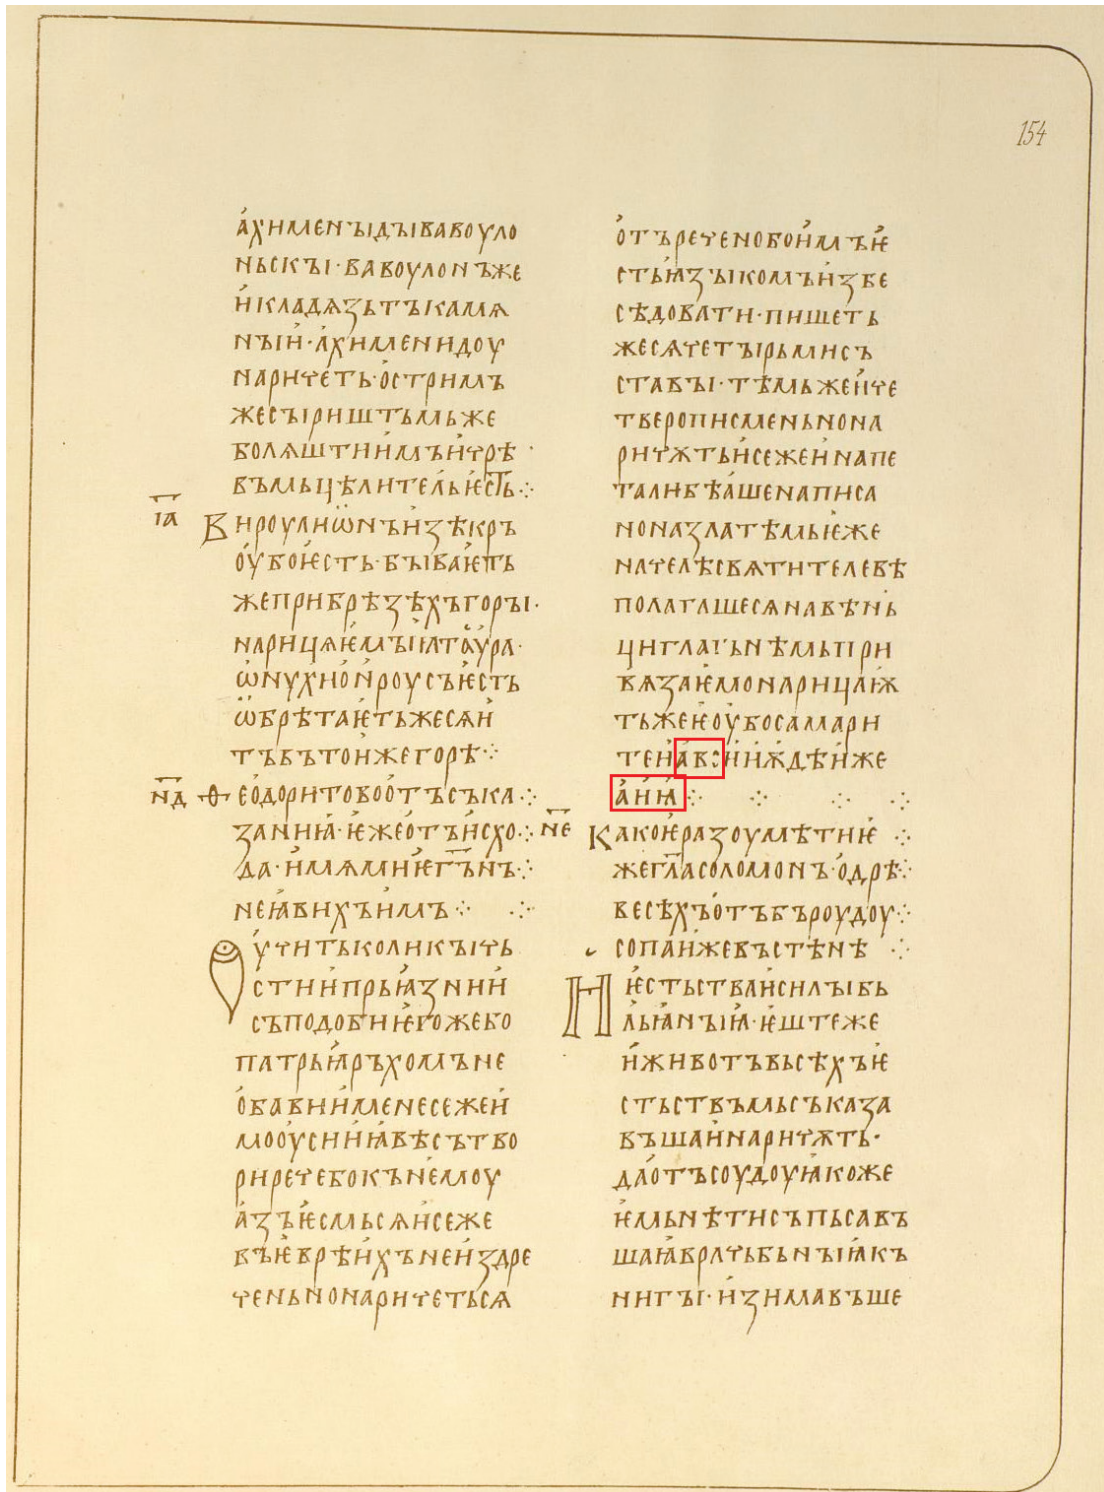 154
а҆хименꙑдꙑвавоуло
ньскꙑ·вавоулонъже
и҆кладѧзьтъкамѧ
нꙑи҆·а҆хименидоу
наричеть·о҆стримъ
жесꙑриштьмьже
болѧштиимъи҆чрѣ·
въмьцѣлитель·ѥ҆сть⁘
ꙇа Вироулиѡ̈нъи҆зѣкръ
оу҆боѥ҆сть·бꙑваѥ҆ть
жеприбрѣзѣхъгорꙑ·
нарицѧѥ҆мꙑꙗ҆таѵ҆ра·
ѡ̈нѵхио҆нроусъѥ҆сть
ѡ̈брѣтаѥ҆тьжесѧи҆
тъвътоиже горѣ⁘
н҃д Ѳео҆доритовоо҆тъсъка⁘
заниꙗ҆·ѥ҆жео҆тъи҆схо⁘
да·и҆мѧмиѥ҆г҃ьнъ⁘
неꙗ҆вихъи҆мъ⁘ ⁘
Оучитыколикꙑчь
стиипрьꙗ҆знии
съподобиѥ҆гожебо
патрьꙗ҆ръхомъне
о҆бавии҆менесежеи҆
моо҆усииꙗ҆вѣсътво
риречебокън҄ємоу
а҆зъѥ҆смьсѧи҆сеже
въѥ҆врѣи҆хънеи҆здре
ченьнонаричетьсѧ
о҆търеченобои҆мъѥ҆
стьꙗ҆зꙑкомьи҆збе
сѣдовати·пишеть
жесѧчетꙑрьмисъ
ставꙑ·тѣмьжеи҆че
тверописменьнона
ричѫтьи҆сежеи҆напе
талибѣа҆шенаписа
ноназлатѣмьѥ҆же
начелѣсвѧтителевѣ
полагашесѧнавѣнь
циглагьнѣмьпри
вѧзаѥ҆монарицаѭ҆
тьжеѥ҆оу҆босамари
теиа҆вꙩи҆иѭ҆дѣи҆же
а҆и҆ꙗ҆⁘ ⁘ ⁘ ⁘
н҃е Какоѥ҆разоумѣтиѥ҆⁘
жегл҃асоломонъ·о҆дрѣ⁘
весѣхъо҆тъбъроудоу⁘
сопаи҆жевъстѣнѣ⁘
Иѥ҆стьстваи҆силꙑбь
льꙗ҆нꙑꙗ҆·ѥ҆штеже
и҆животъвьсѣхъѥ҆
стьствъмьсъказа
въшаи҆наричѫть·
дао҆тъсоудоуꙗ҆коже
ѥ҆мьнѣтисъпьсавъ
шаꙗ҆врачьбьнꙑꙗ҆къ
нигꙑ·и҆зимавъше